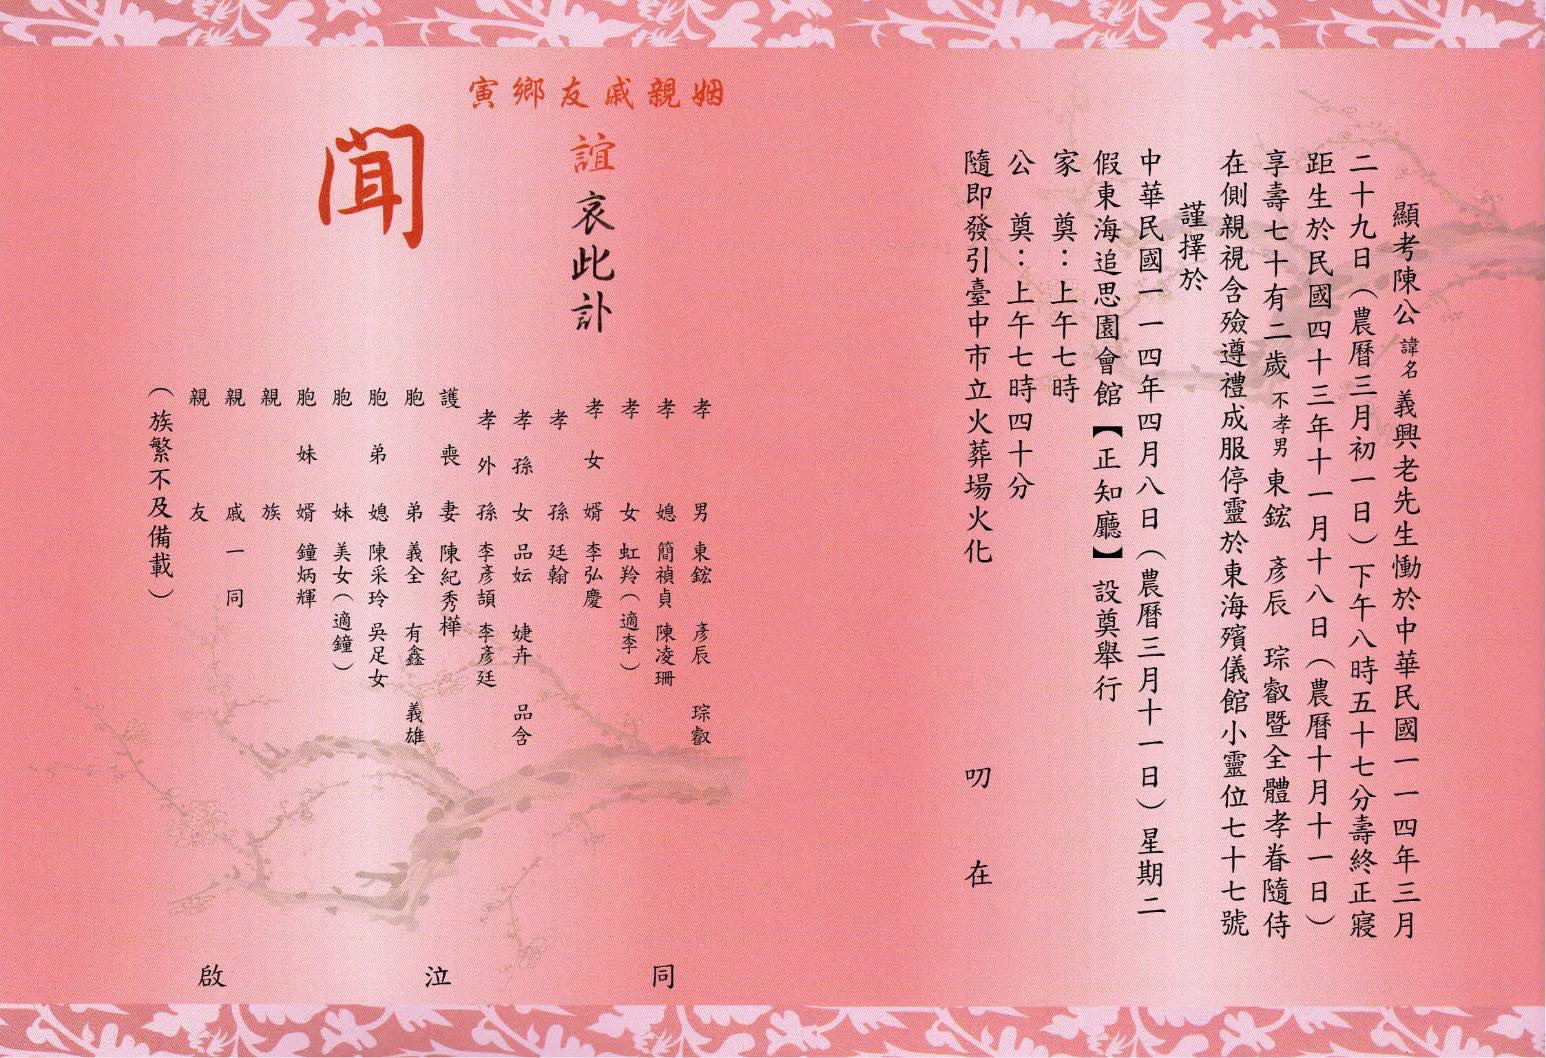 顯考陳公諱名義興老先生慟於中華民國一一四年三月
二十九日（農曆三月初一日）下午八時五十七分壽終正寢
距生於民國四十三年十一月十八日（農曆十月十一日）
享壽七十有二歲不孝男東鋐　彥辰　琮叡暨全體孝眷隨侍
在側親視含殮遵禮成服停靈於東海殯儀館小靈位七十七號
謹擇於
中華民國一一四年四月八日（農曆三月十一日）星期二
假東海追思園會館【正知廳】設奠舉行
家　奠：上午七時
公　奠：上午七時四十分
隨即發引臺中市立火葬場火化　叨　在
姻親戚友鄉寅
誼哀此訃
聞
孝男　東鋐　彥辰　琮叡
孝媳　簡禎貞　陳凌珊
孝女　虹羚（適李）
孝女婿　李弘慶
孝孫　廷翰
孝孫女　品妘　婕卉　品含
孝外孫　李彥頡　李彥廷
護喪妻　陳紀秀樺
胞弟　義全　有鑫　義雄
胞弟媳　陳采玲　吳足女
胞妹　美女（適鐘）
胞妹婿　鐘炳輝
親族
親戚一同
親友
（族繁不及備載）
同泣啟